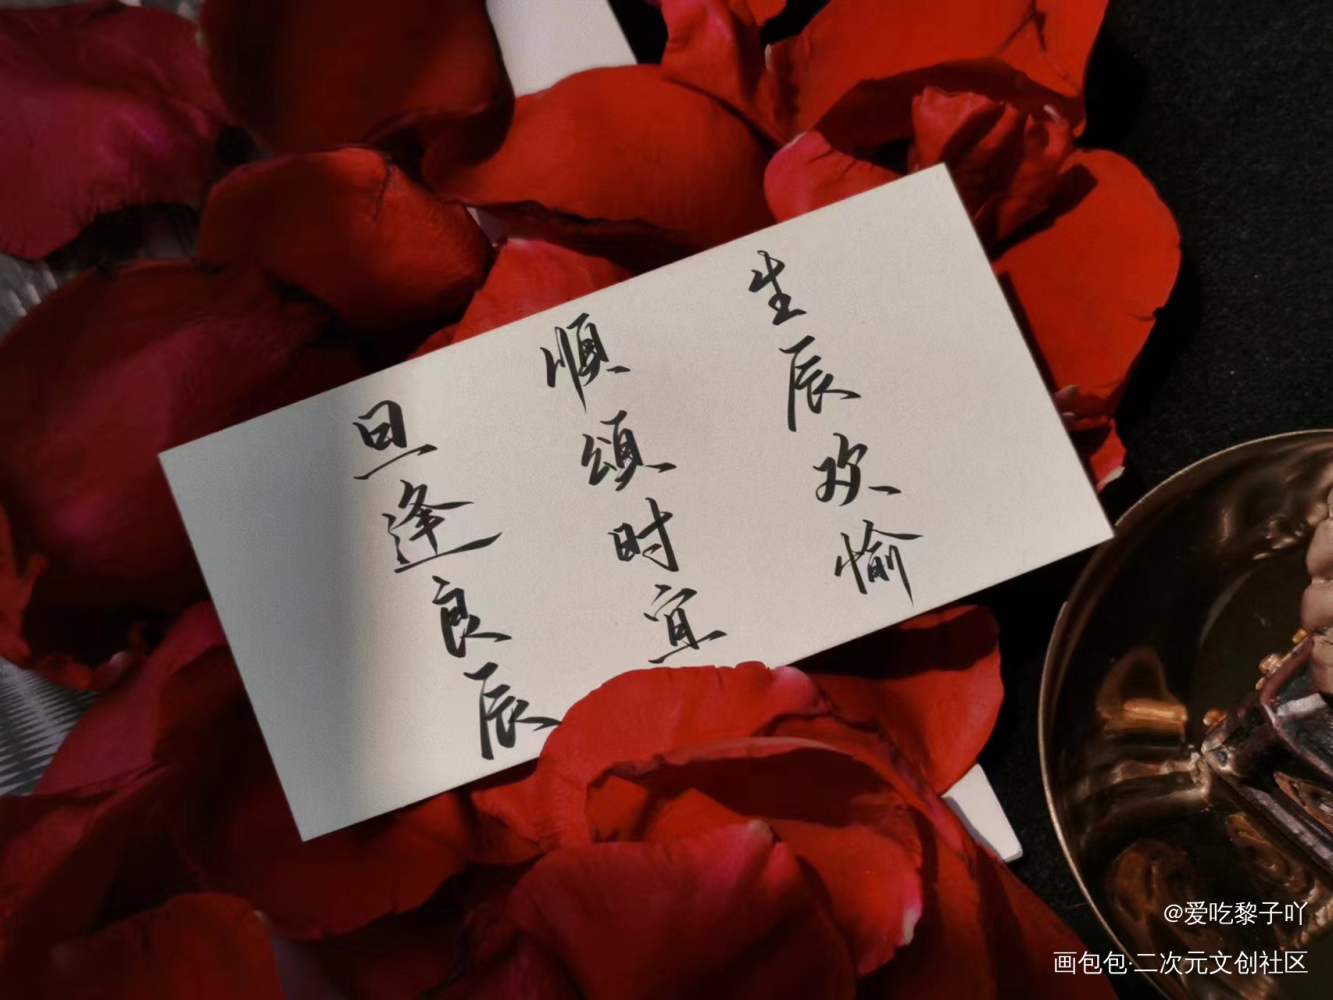 生辰欢愉
顺颂时宜
旦逢良辰
@爱吃黎子吖
画包包·二次元文创社区